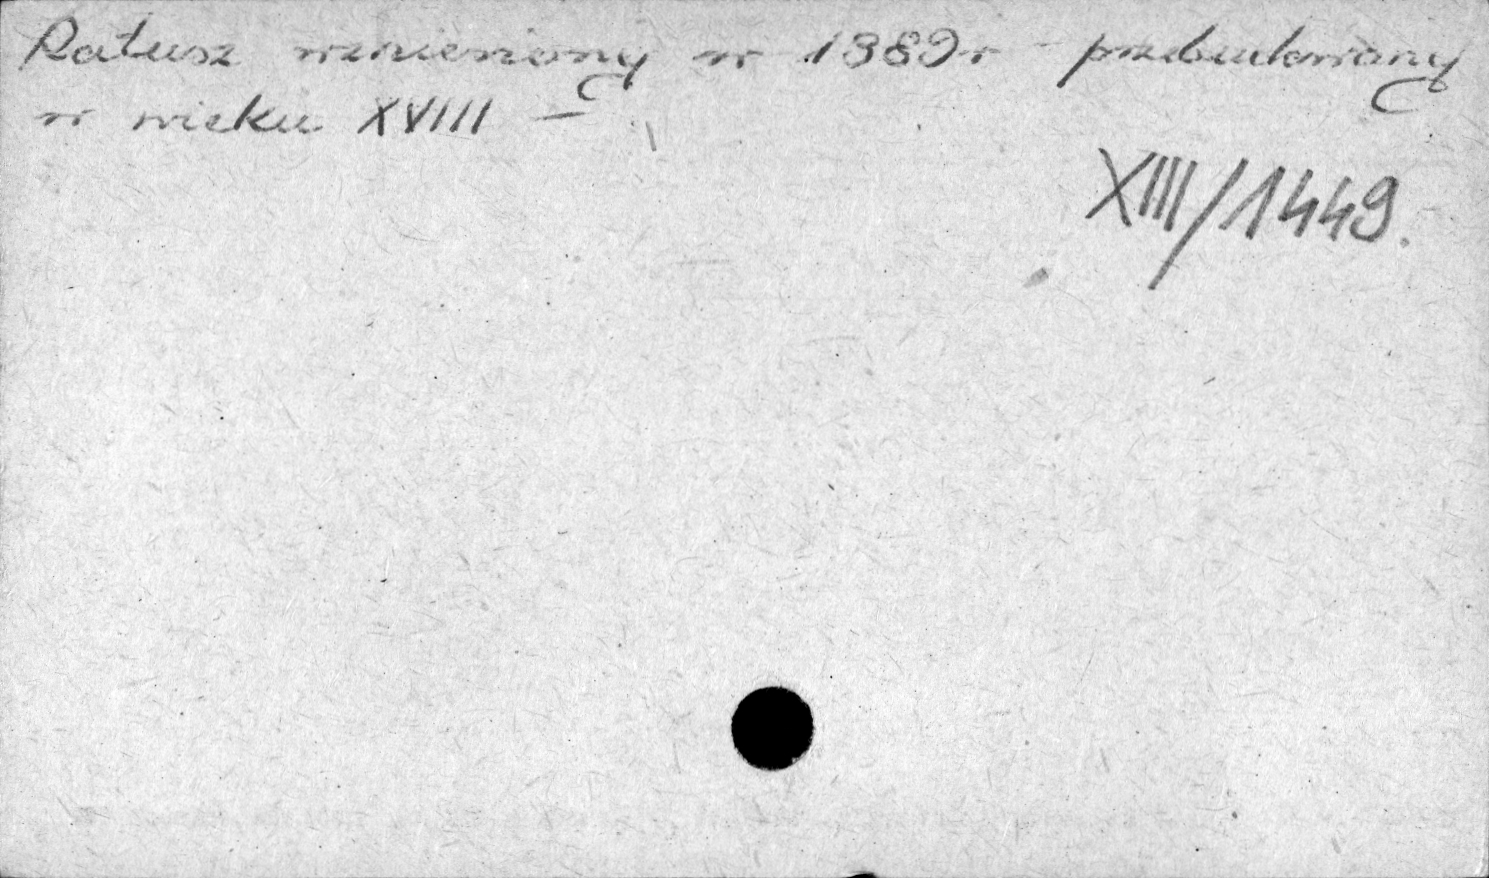 Ratusz wzniesiony w 1389 r - przebudowany
w wieku XVIII -
XIII/1449.